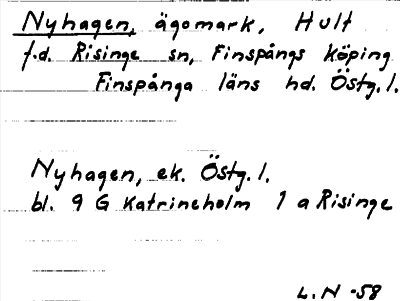 Nyhagen, ägomark, Hult
f.d. Risinge sn, Finspångs köping
Finspånga läns hd. Östg.l.
Nyhagen, ek. Östg.l.
bl. 9 G Katrineholm 1 a Risinge
L.N -58